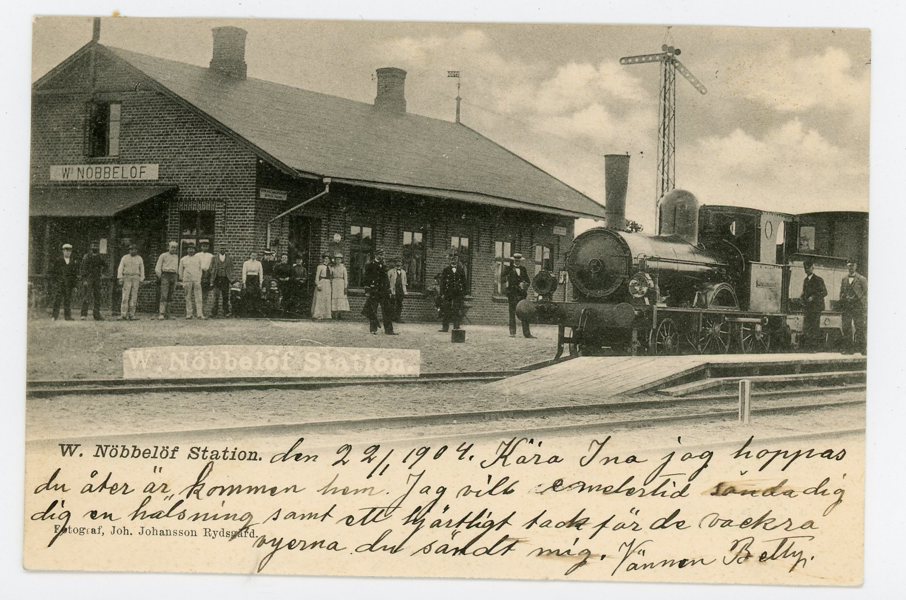 Wa NÖBBELÖF
W. Nöbbelöf Station.
W. Nöbbelöf Station. den 22/1 1904. Kära Ina jag hoppas
du åter är kommen hem. Jag vill emelertid sända dig
dig en hälsning samt ett hjärtligt tack för de vackra
Fotograf, Joh. Johansson Rydsgård.
vyerna du sändt mig. Vännen Betty.